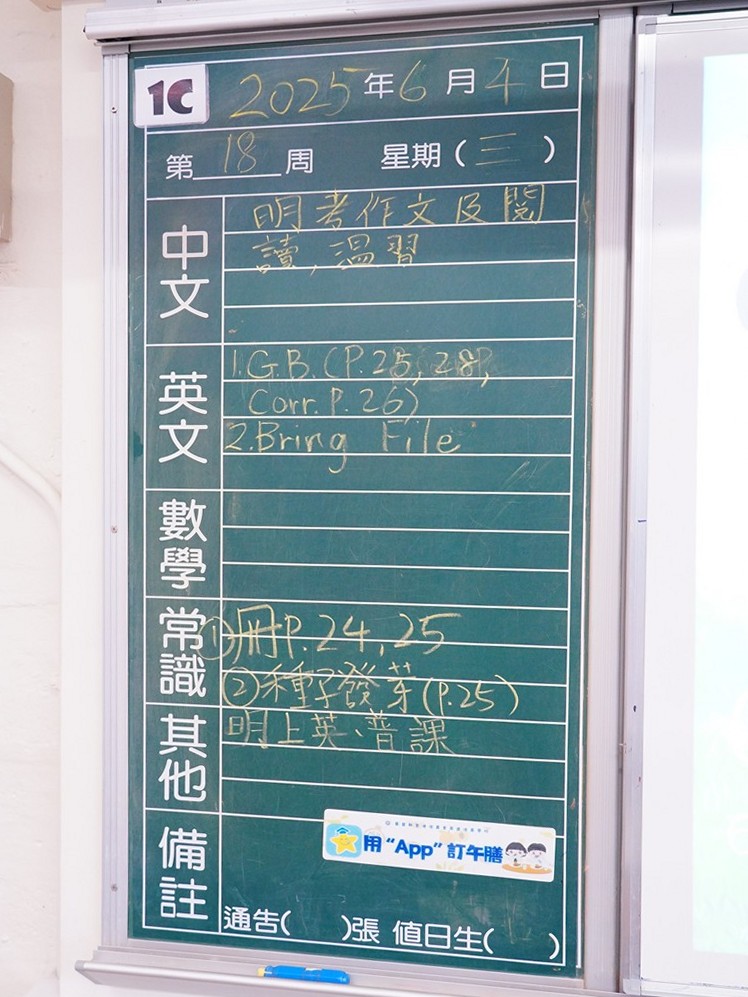 1C
2025年6月4日
第18周 星期(三)
中文
明考作文及閱
讀,溫習
英文
1.G.B.(P.25,28,
Corr.P.26)
2.Bring File
數學
常識
①冊P.24,25
②種子發芽(P.25)
其他
明上英、普課
備註
用“App”訂午膳
通告( )張 值日生( )